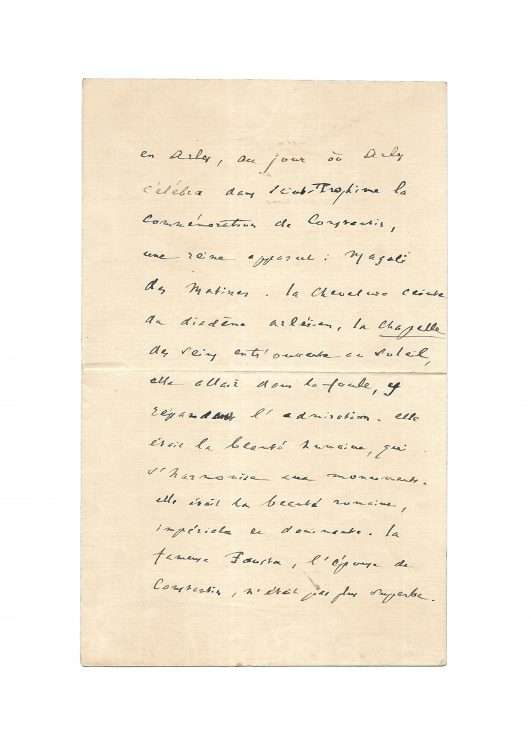 en Arles, au jour où Arles
célébra dans Saint-Trophime la
commémoration de Constantin,
une reine apparut : Magali
des Matines. la chevelure ceinte
du diadème arlésien, la chapelle
des seins entr'ouverte au soleil,
elle allait dans la foule, y
répandant l'admiration. elle
était la beauté humaine, qui
s'harmonise aux monuments.
elle était la beauté romaine,
impériale et dominante. la
fameuse Fausta, l'épouse de
Constantin, n'était pas plus superbe.